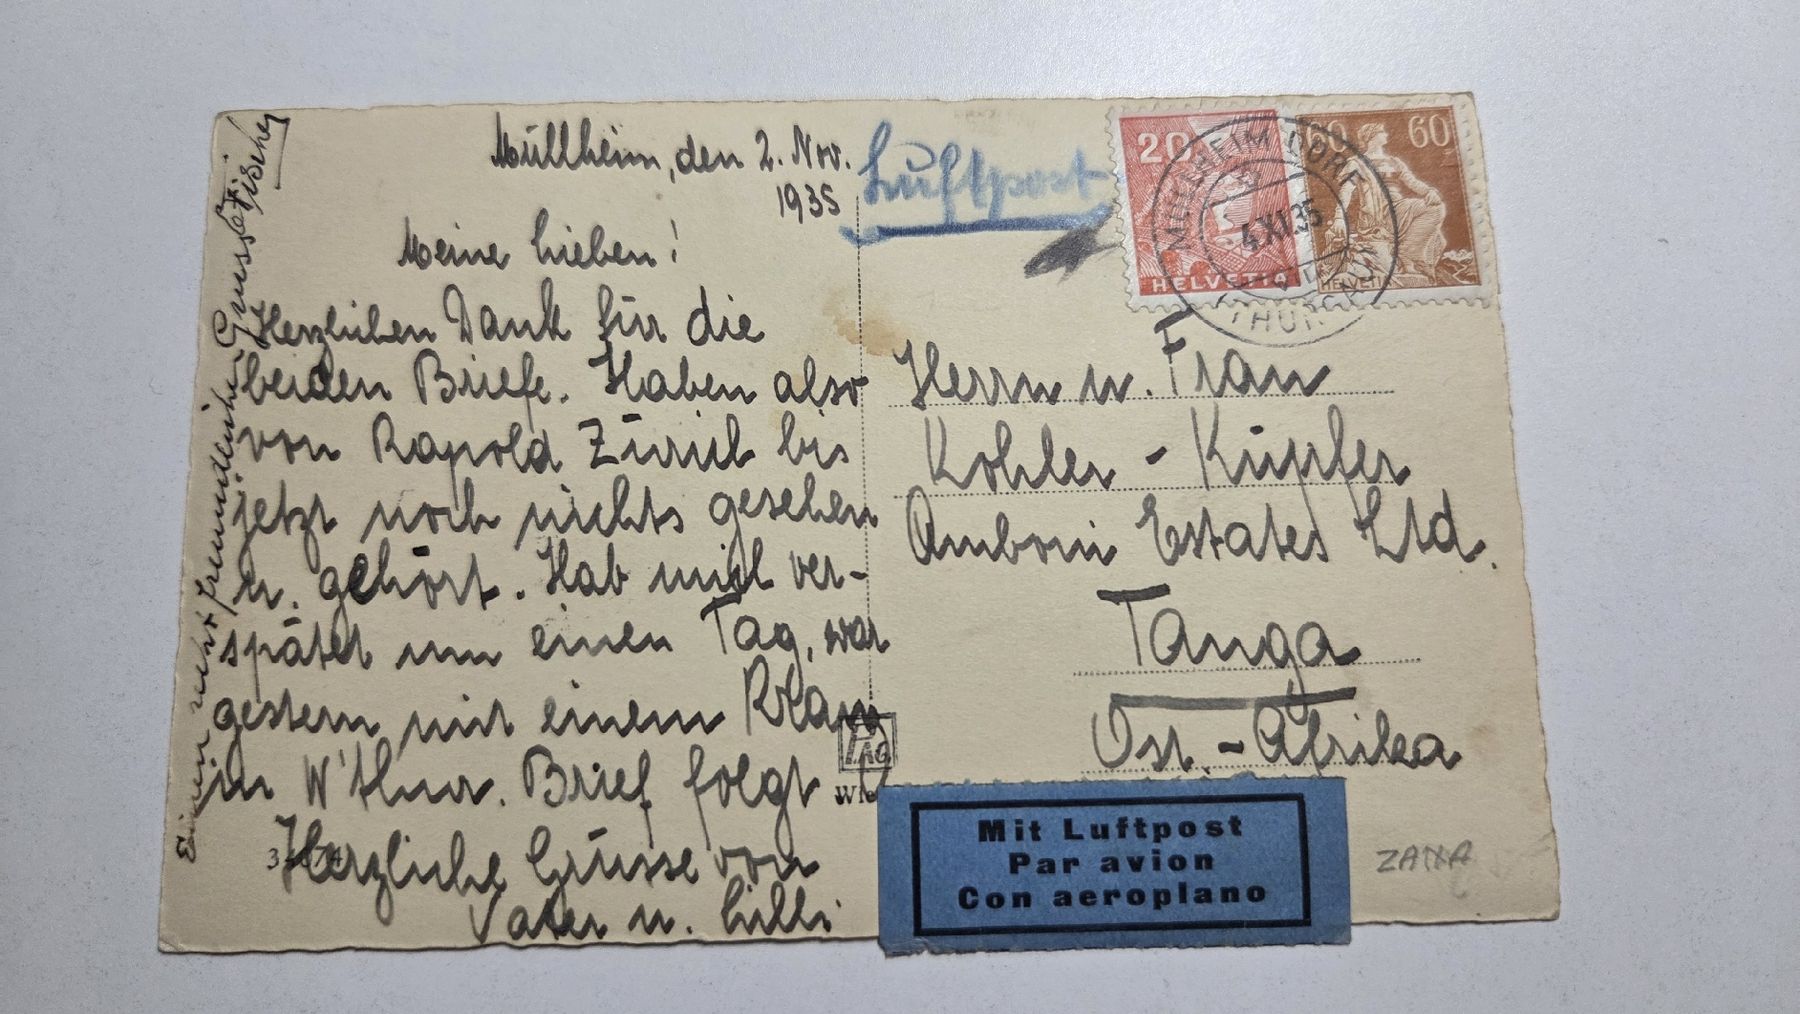 Müllheim, den 2. Nov.
1935
Meine Lieben!
Herzlichen Dank für die
beiden Briefe. Haben also
von Rapold Zürich bis
jetzt noch nichts gesehen
u. gehört. Hab mich ver-
spätet um einen Tag, war
gestern mit einem
in W'thur. Brief folgt
Herzliche Grüsse von
Vater u. Lilli
Einen recht freundlichen Gruss Fischer
Luftpost
20
HELVETIA
60 60
HELVETIA
MÜLLHEIM DORF
4.XI.35
(THURGAU)
Herrn u. Frau
Kohler-Küpfer
Amboni Estates Ltd.
Tanga
Ost.-Afrika
PAG
Mit Luftpost
Par avion
Con aeroplano